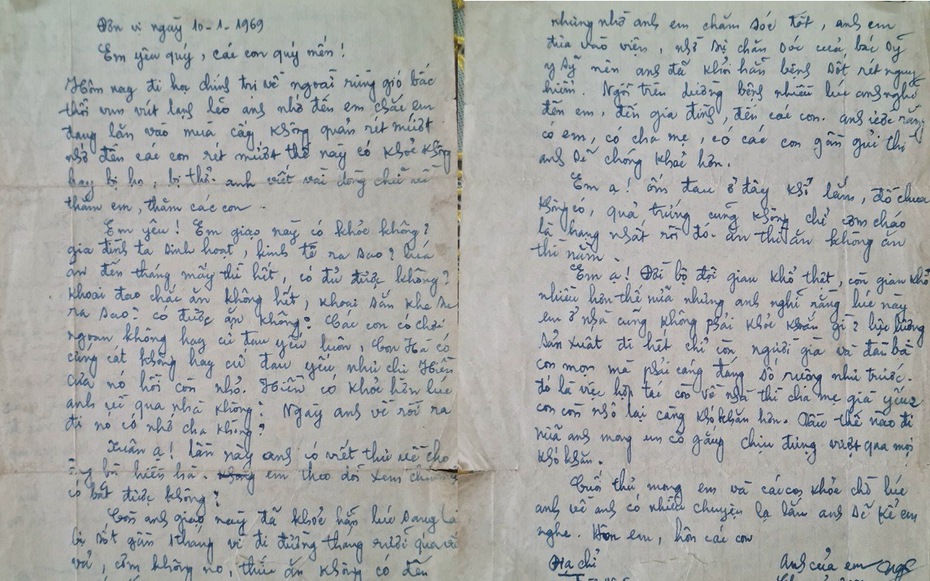 Đơn vị ngày 10-1-1969
Em yêu quý, các con quý mến!
Hôm nay đi học chính trị về ngoài rừng gió bấc
thổi vun vút lạnh lẽo anh nhớ đến em chắc em
đang lăn vào mùa cấy không quản rét mướt
nhớ đến các con rét mướt thế này có khỏe không
hay bị ho, bị thở. anh viết vài dòng chữ về
thăm em, thăm các con.
Em yêu! Em giạo này có khỏe không?
gia đình ta sinh hoạt, kinh tế ra sao? lúa
ăn đến tháng mấy thì hết, có đủ được không?
khoai đao chắc ăn không hết, khoai sắn khe
ra sao? có được ăn không? Các con có chơi
ngoan không hay cứ đau yếu luôn, con Hà có
cứng cát không hay cứ đau yếu như chị Hiền
của nó hồi còn nhỏ. Hiền có khỏe hơn lúc
anh về qua nhà không? Ngày anh về rồi ra
đi nó có nhớ cha không?
Xuân ạ! lần này anh có viết thư về cho
ông bà hiền hà. em theo dõi xem
có bắt được không?
Còn anh giạo này đã khỏe hẳn lúc sang
bị sốt gần 1 tháng vì đi đường tháng rưỡi quá
vả, cơm không no, thức ăn không có đến
nhưng nhờ anh em chăm sóc tốt, anh em
đưa vào viện, nhờ sự chăn sóc của bác sỹ
y sỹ nên anh đã khỏi hẳn bệnh sốt rét nguy
hiểm. Ngồi trên dường bệnh nhiều lúc anh nghĩ
đến em, đến gia đình, đến các con. anh ước rằng
có em, có cha mẹ, có các con gần gửi thì
anh sẽ chóng khỏe hơn.
Em ạ! ốm đau ở đây khổ lắm, đỗ chua
không có, quả trứng cũng không chỉ cơm cháo
là hạng nhất rồi đó. ăn thì ăn không ăn
thì nằm.
Em ạ! Đời bộ đội gian khổ thật, còn gian khổ
nhiều hơn thế nữa nhưng anh nghĩ rằng lúc này
em ở nhà cũng không phải khỏe khoắn gì? lực lượng
sản xuất đi hết chỉ còn người già và đàn bà
con mọn mà phải cáng đáng số ruộng như trước.
đó là việc hợp tác còn về nhà thì cha mẹ già yếu
con còn nhỏ lại càng khó khăn hơn. Dầu thế nào đi
nữa anh mong em cố gắng chịu đựng vượt qua mọi
khó khăn.
Cuối thư mong em và các con khỏe chờ lúc
anh về anh có nhiều chuyện lạ lắm anh sẽ kể em
nghe. Hôn em, hôn các con
Địa chỉ
Anh của em